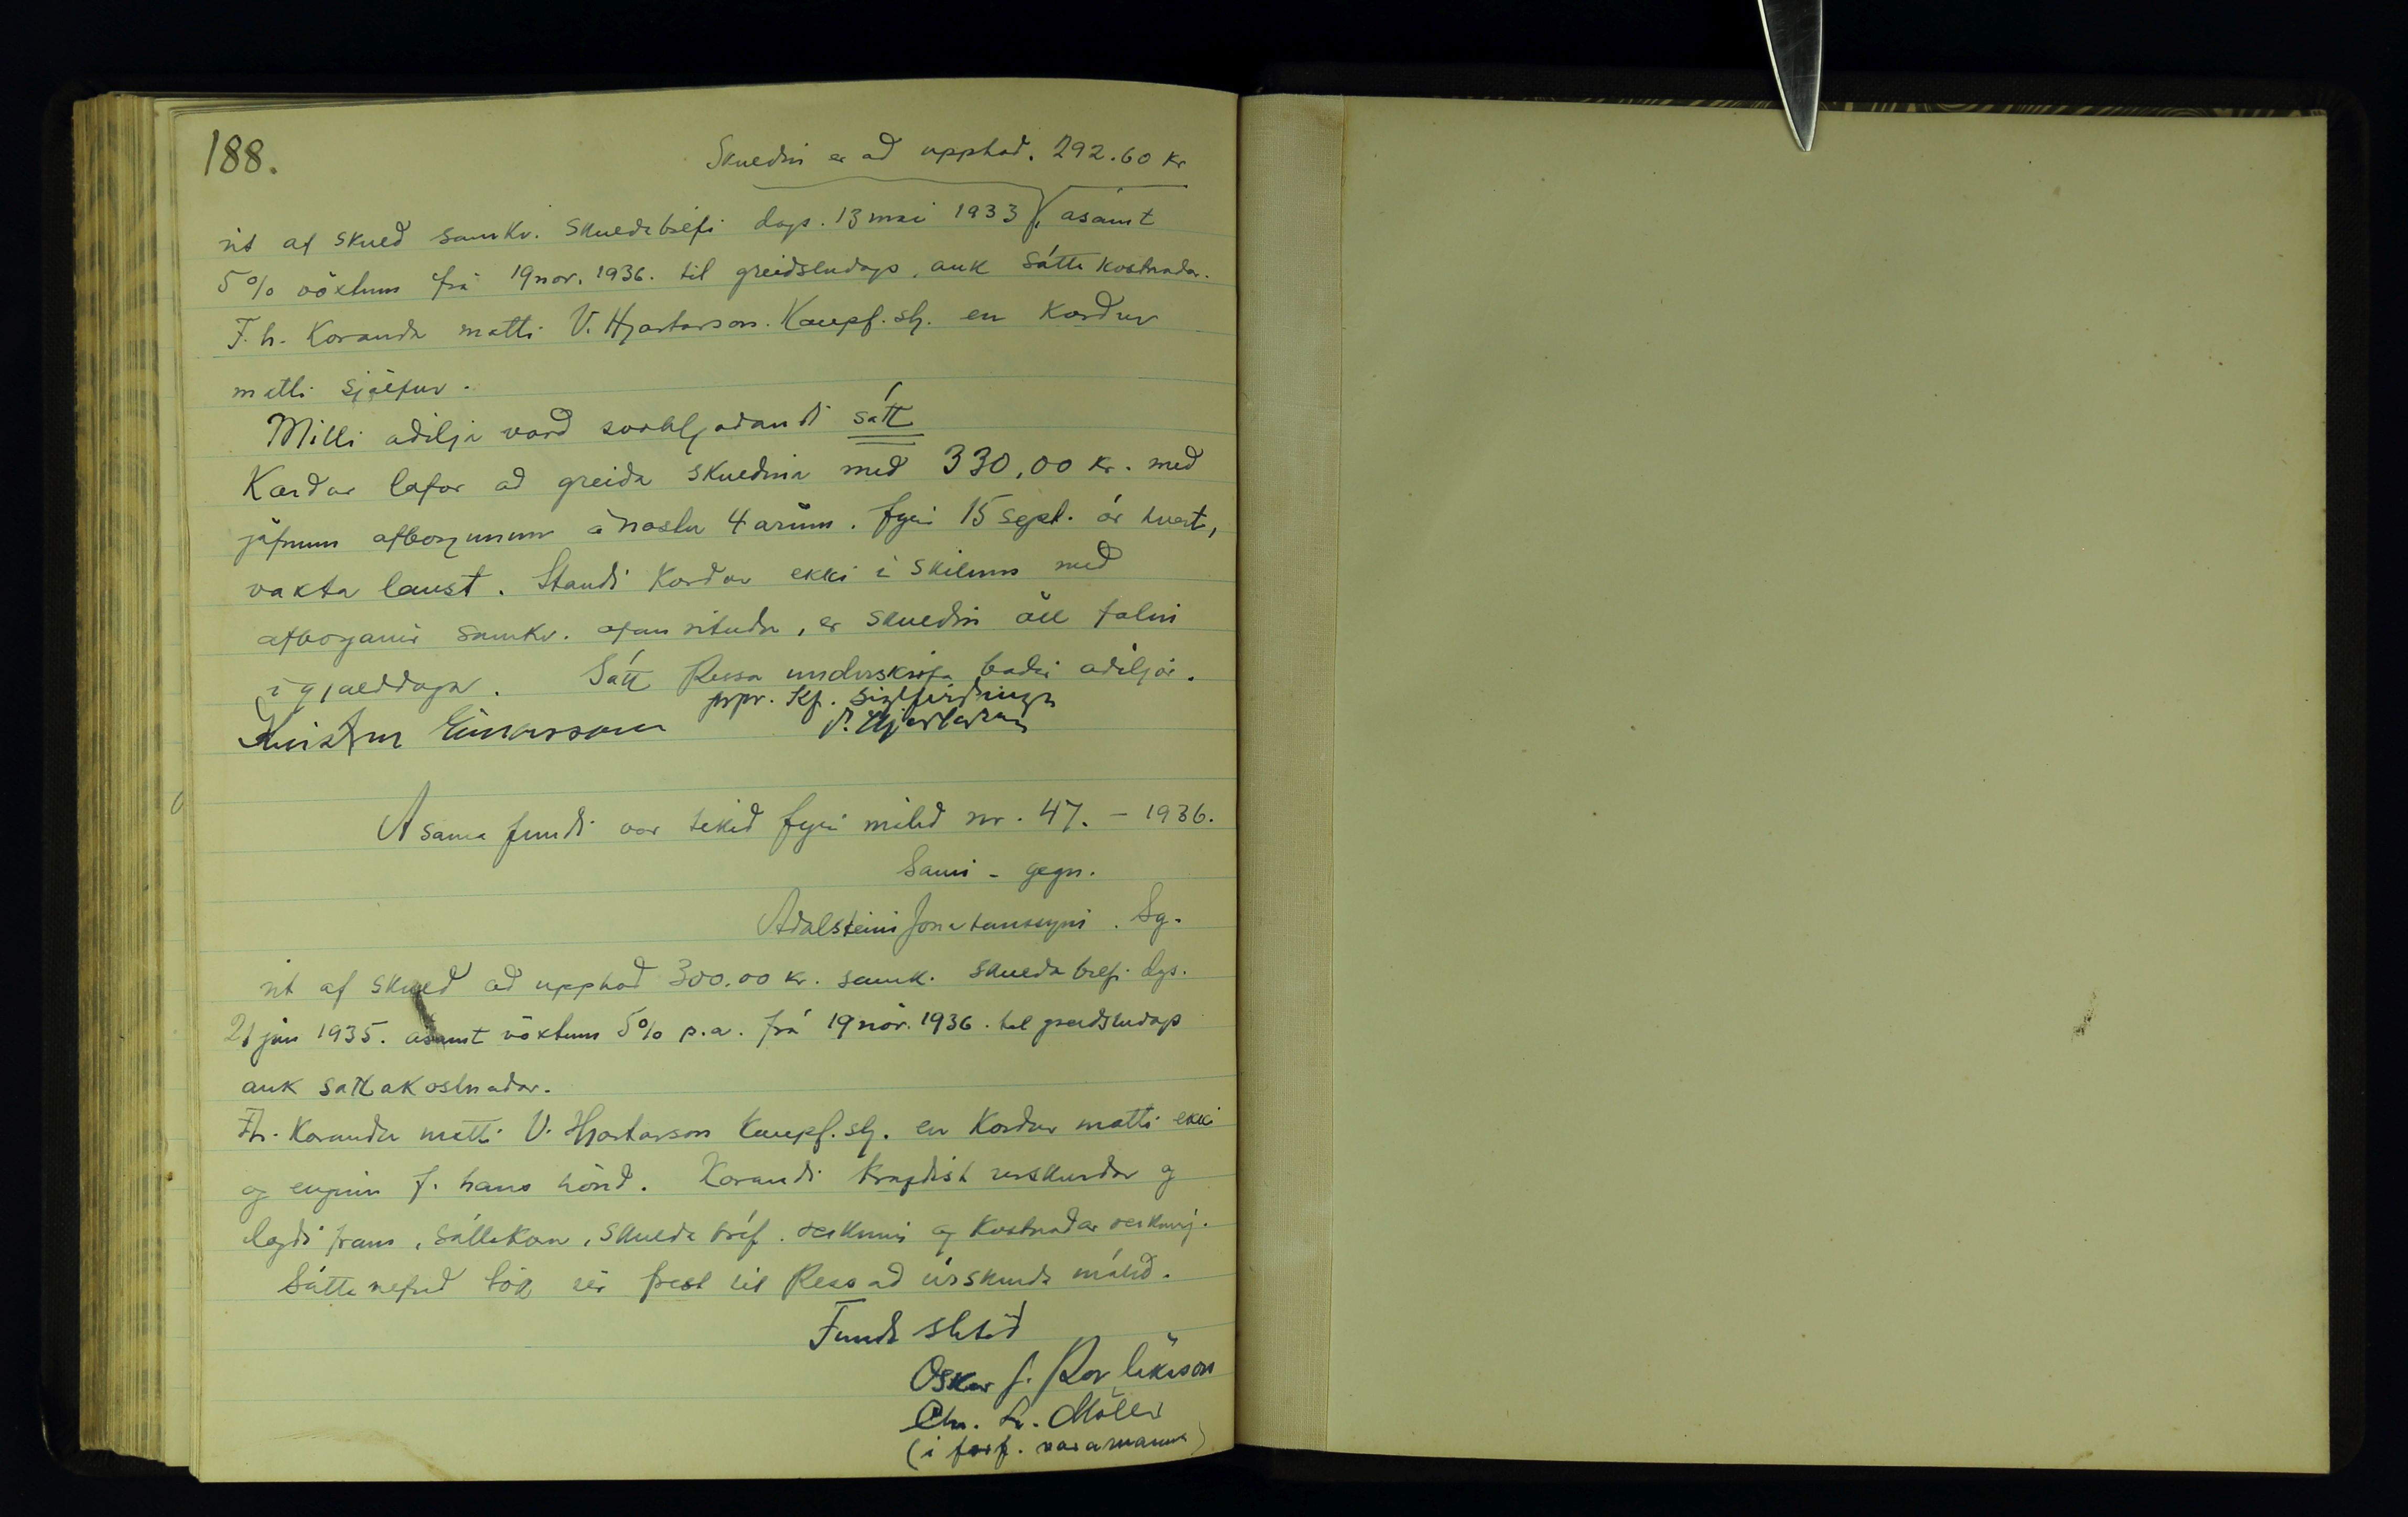 188.
Skuldin er að upphæð. 292.60 kr
út af skuld samkv. skuldabréfi dags. 13 maí 1933, ásamt
5% vöxtum frá 19 nóv. 1936. til greiðsludags, auk sáttakostnaðar.
F. h. Kæranda mætti V. Hjartarson. Kaupf. stj. en Kærður
mætti sjálfur.
Milli aðilja varð svohljóðandi sátt
Kærður lofar að greiða skuldina með 330,00 kr. með
jöfnum afborgunum á næstu 4 árum. fyrir 15 sept. ár hvert,
vaxta laust. Standi Kærður ekki í skilum með
afborganir samkv. ofan rituðu, er skuldin öll fallin
í gjalddaga. Sátt þessa undirskrifa báðir aðiljar.
prpr. Kf. Siglfirðinga
Kristinn Einarsson V. Hjartarson
Á sama fundi var tekið fyrir málið nr. 47. - 1936.
Sami - gegn.
Aðalsteini Jónatanssyni. Sg.
út af skuld að upphæð 300.00 kr. samk. skuldabréfi dgs.
21 jún 1935. ásamt vöxtum 5% p.a. frá 19 nóv. 1936. til greiðsludags
auk sáttakostnaðar.
F.h. Kæranda mætti V. Hjartarson Kaupf. stj. en Kærður mætti ekki
og enginn f. hans hönd. Kærandi krafðist úrskurðar og
lagði fram, sáttakæru, skuldabréf. reikning og kostnaðar reikning.
Sáttanefnd tók sér frest til þess að úrskurða málið.
Fundi slitið
Óskar J. Þorláksson
Chr. L. Möller
(í forf. varamanns)